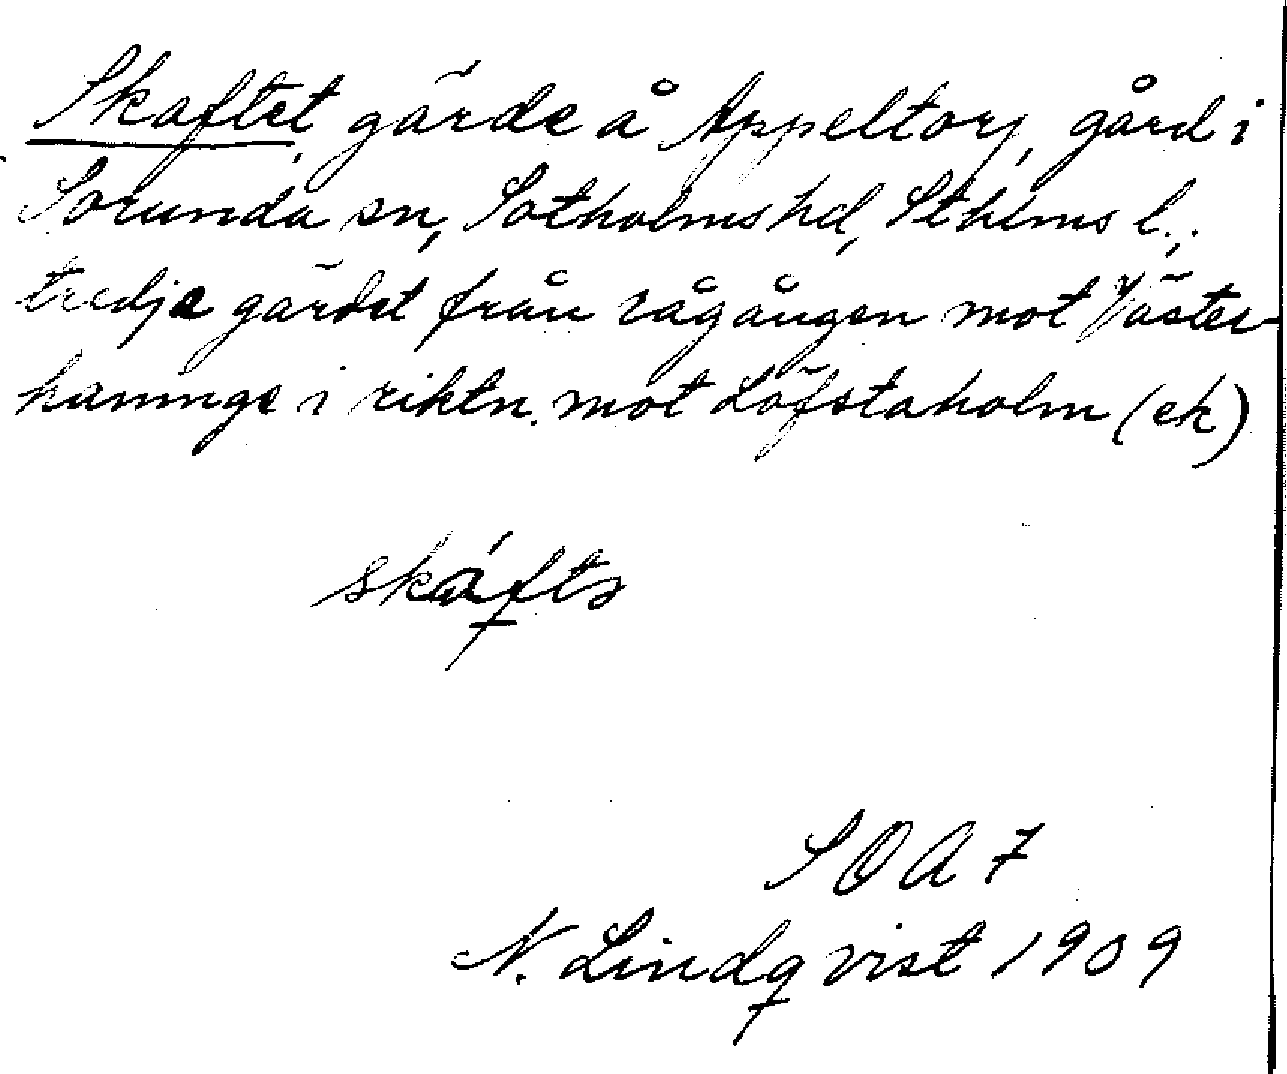 Skaftet, gärde å Appeltorp, gård i
Sorunda sn, Sotholms hd, Sthlms l.;
tredje gärdet från rågången mot Väster-
haninge i riktn. mot Löfstaholm (ek)
skáftə
SOA 7
N. Lindqvist 1909